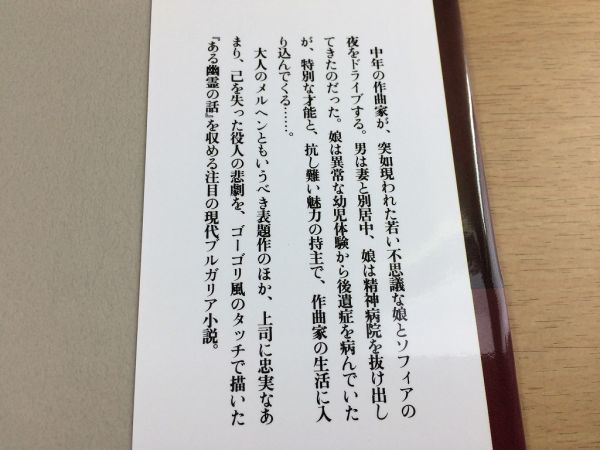 中年の作曲家が、突如現われた若い不思議な娘とソフィアの
夜をドライブする。男は妻と別居中、娘は精神病院を抜け出し
てきたのだった。娘は異常な幼児体験から後遺症を病んでいた
が、特別な才能と、抗し難い魅力の持主で、作曲家の生活に入
り込んでくる……。
大人のメルヘンともいうべき表題作のほか、上司に忠実なあ
まり、己を失った役人の悲劇を、ゴーゴリ風のタッチで描いた
『ある幽霊の話』を収める注目の現代ブルガリア小説。